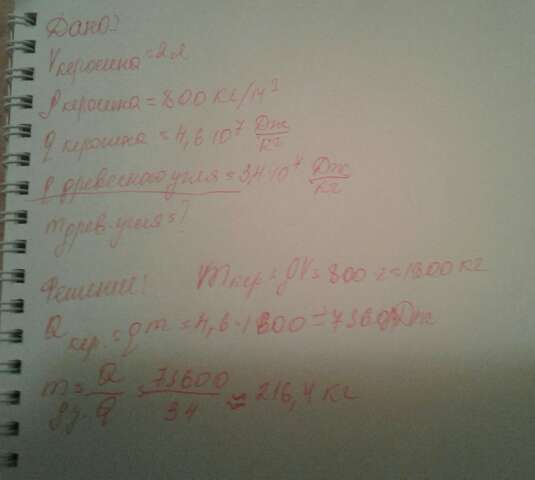 Дано:
Vкеросина = 2л
ρ керосина = 800 кг/м³
q керосина = 4,6·10⁷ Дж/кг
q древесного угля = 3,4·10⁷ Дж/кг
m древ. угля = ?
Решение: mкер = ρV = 800·2 = 1600 кг
Q кер. = qm = 4,6·1600 = Дж
m = Q/q = 73600/34 ≈ 216,4 кг